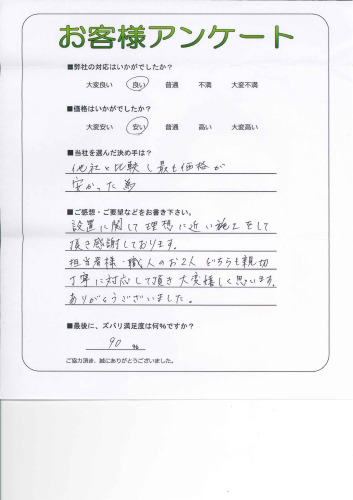 お客様アンケート
■弊社の対応はいかがでしたか?
大変良い 良い 普通 不満 大変不満
■価格はいかがでしたか?
大変安い 安い 普通 高い 大変高い
■当社を選んだ決め手は?
他社と比較し最も価格が
安かった為
■ご感想・ご要望などをお書き下さい。
設置に関して理想に近い施工をして
頂き感謝しております。
担当者様・職人のお2人どちらも親切
丁寧に対応して頂き大変嬉しく思います。
ありがとうございました。
■最後に、ズバリ満足度は何%ですか?
90 %
ご協力頂き、誠にありがとうございました。